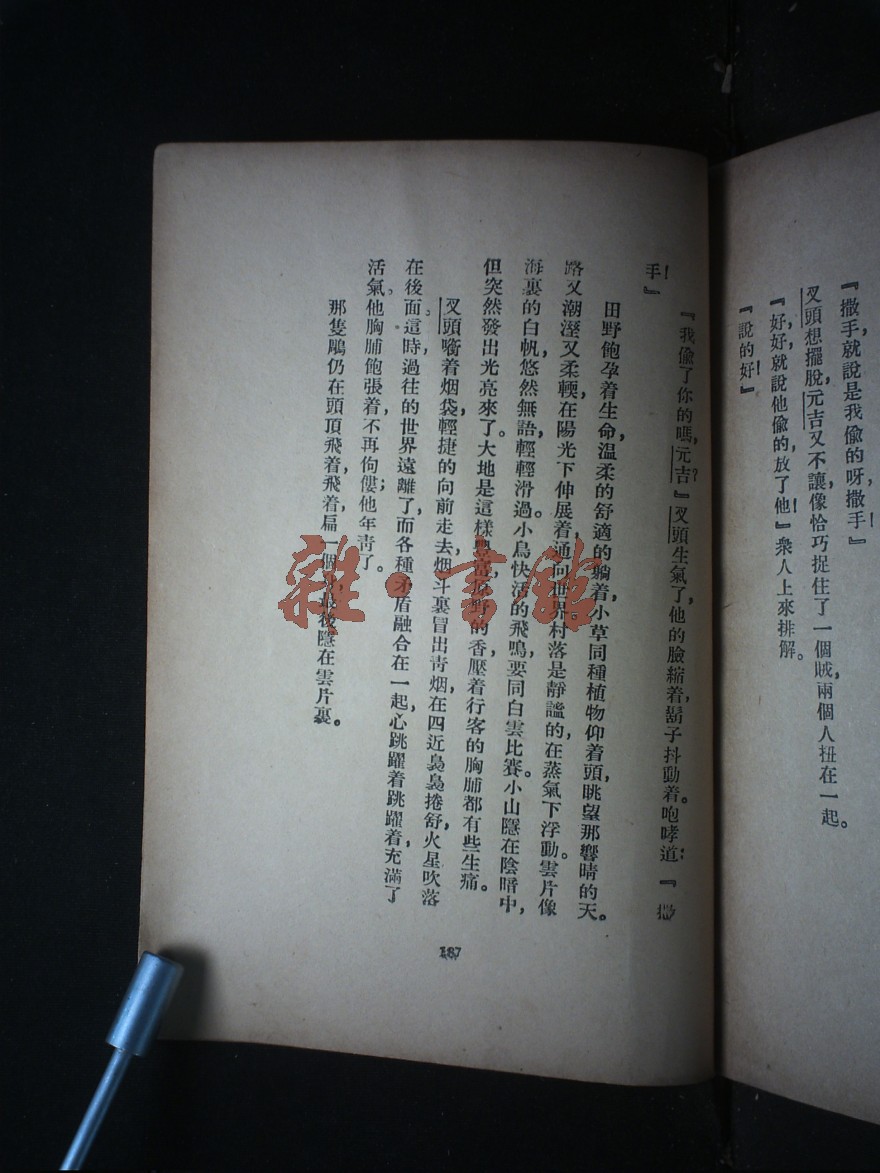 『撒手，就說是我偸的呀，撒手！』
叉頭想擺脫，元吉又不讓，像恰巧捉住了一個賊，兩個人扭在一起。
『好，好，就說他偸的，放了他！』衆人上來排解。
『說的好！』
『我偸了你的嗎，元吉？』叉頭生氣了，他的臉縮着，鬍子抖動着。咆哮道：『撒
手！』
田野飽孕着生命，溫柔的舒適的躺着，小草同種植物仰着頭，眺望那響晴的天。
路又潮溼又柔輭，在陽光下伸展着，通向世界。村落是靜謐的，在蒸氣下浮動。雲片像
海裏的白帆，悠然無語，輕輕滑過。小鳥快活的飛鳴，要同白雲比賽。小山隱在陰暗中，
但突然發出光亮來了。大地是這樣豐富，原野的香壓着行客的胸脯都有些生痛。
叉頭嘀着烟袋，輕捷的向前走去，烟斗裏冒出靑烟，在四近裊裊捲舒，火星吹落
在後面。這時過往的世界遠離了，而各種矛盾融合在一起，心跳躍着跳躍着，充滿了
活氣。他胸脯飽張着，不再佝僂；他年靑了。
那隻鵰仍在頭頂飛着，飛着，扁一個，最後隱在雲片裏。
187
雜·書館